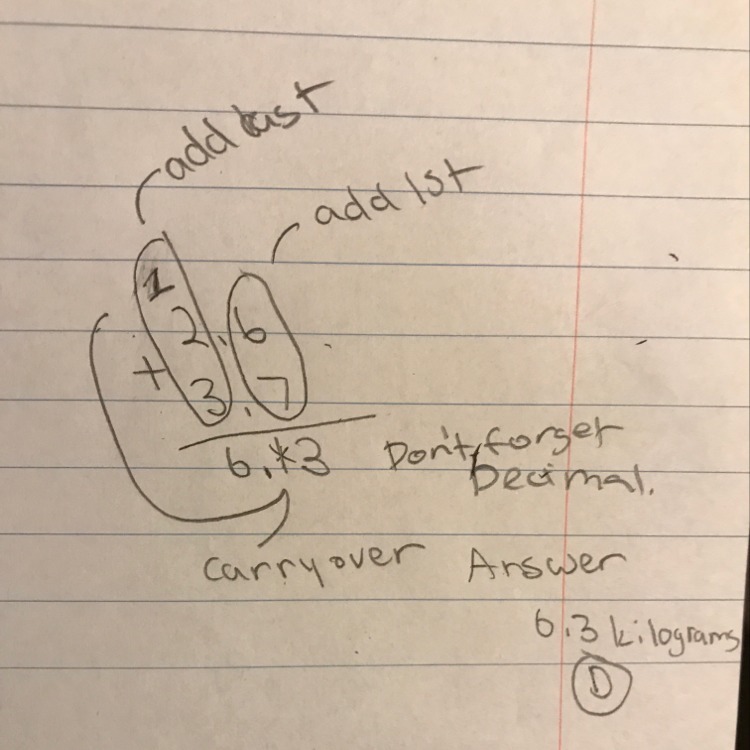 add last
add 1st
1
2.6
+ 3.7
6.*3
Don't forget
Decimal.
Carry over
Answer
6.3 kilograms
D